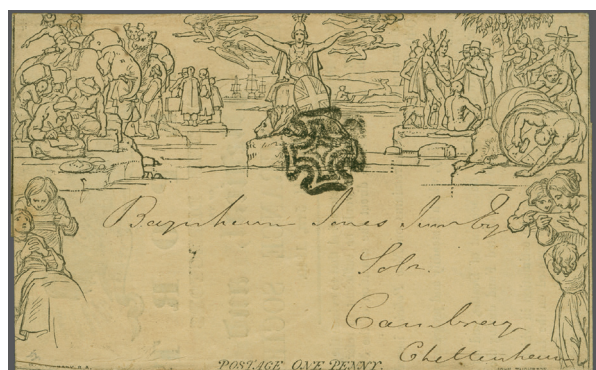 Baynham Jones Junr Esq
Solr.
Cambray
Cheltenham
POSTAGE ONE PENNY.